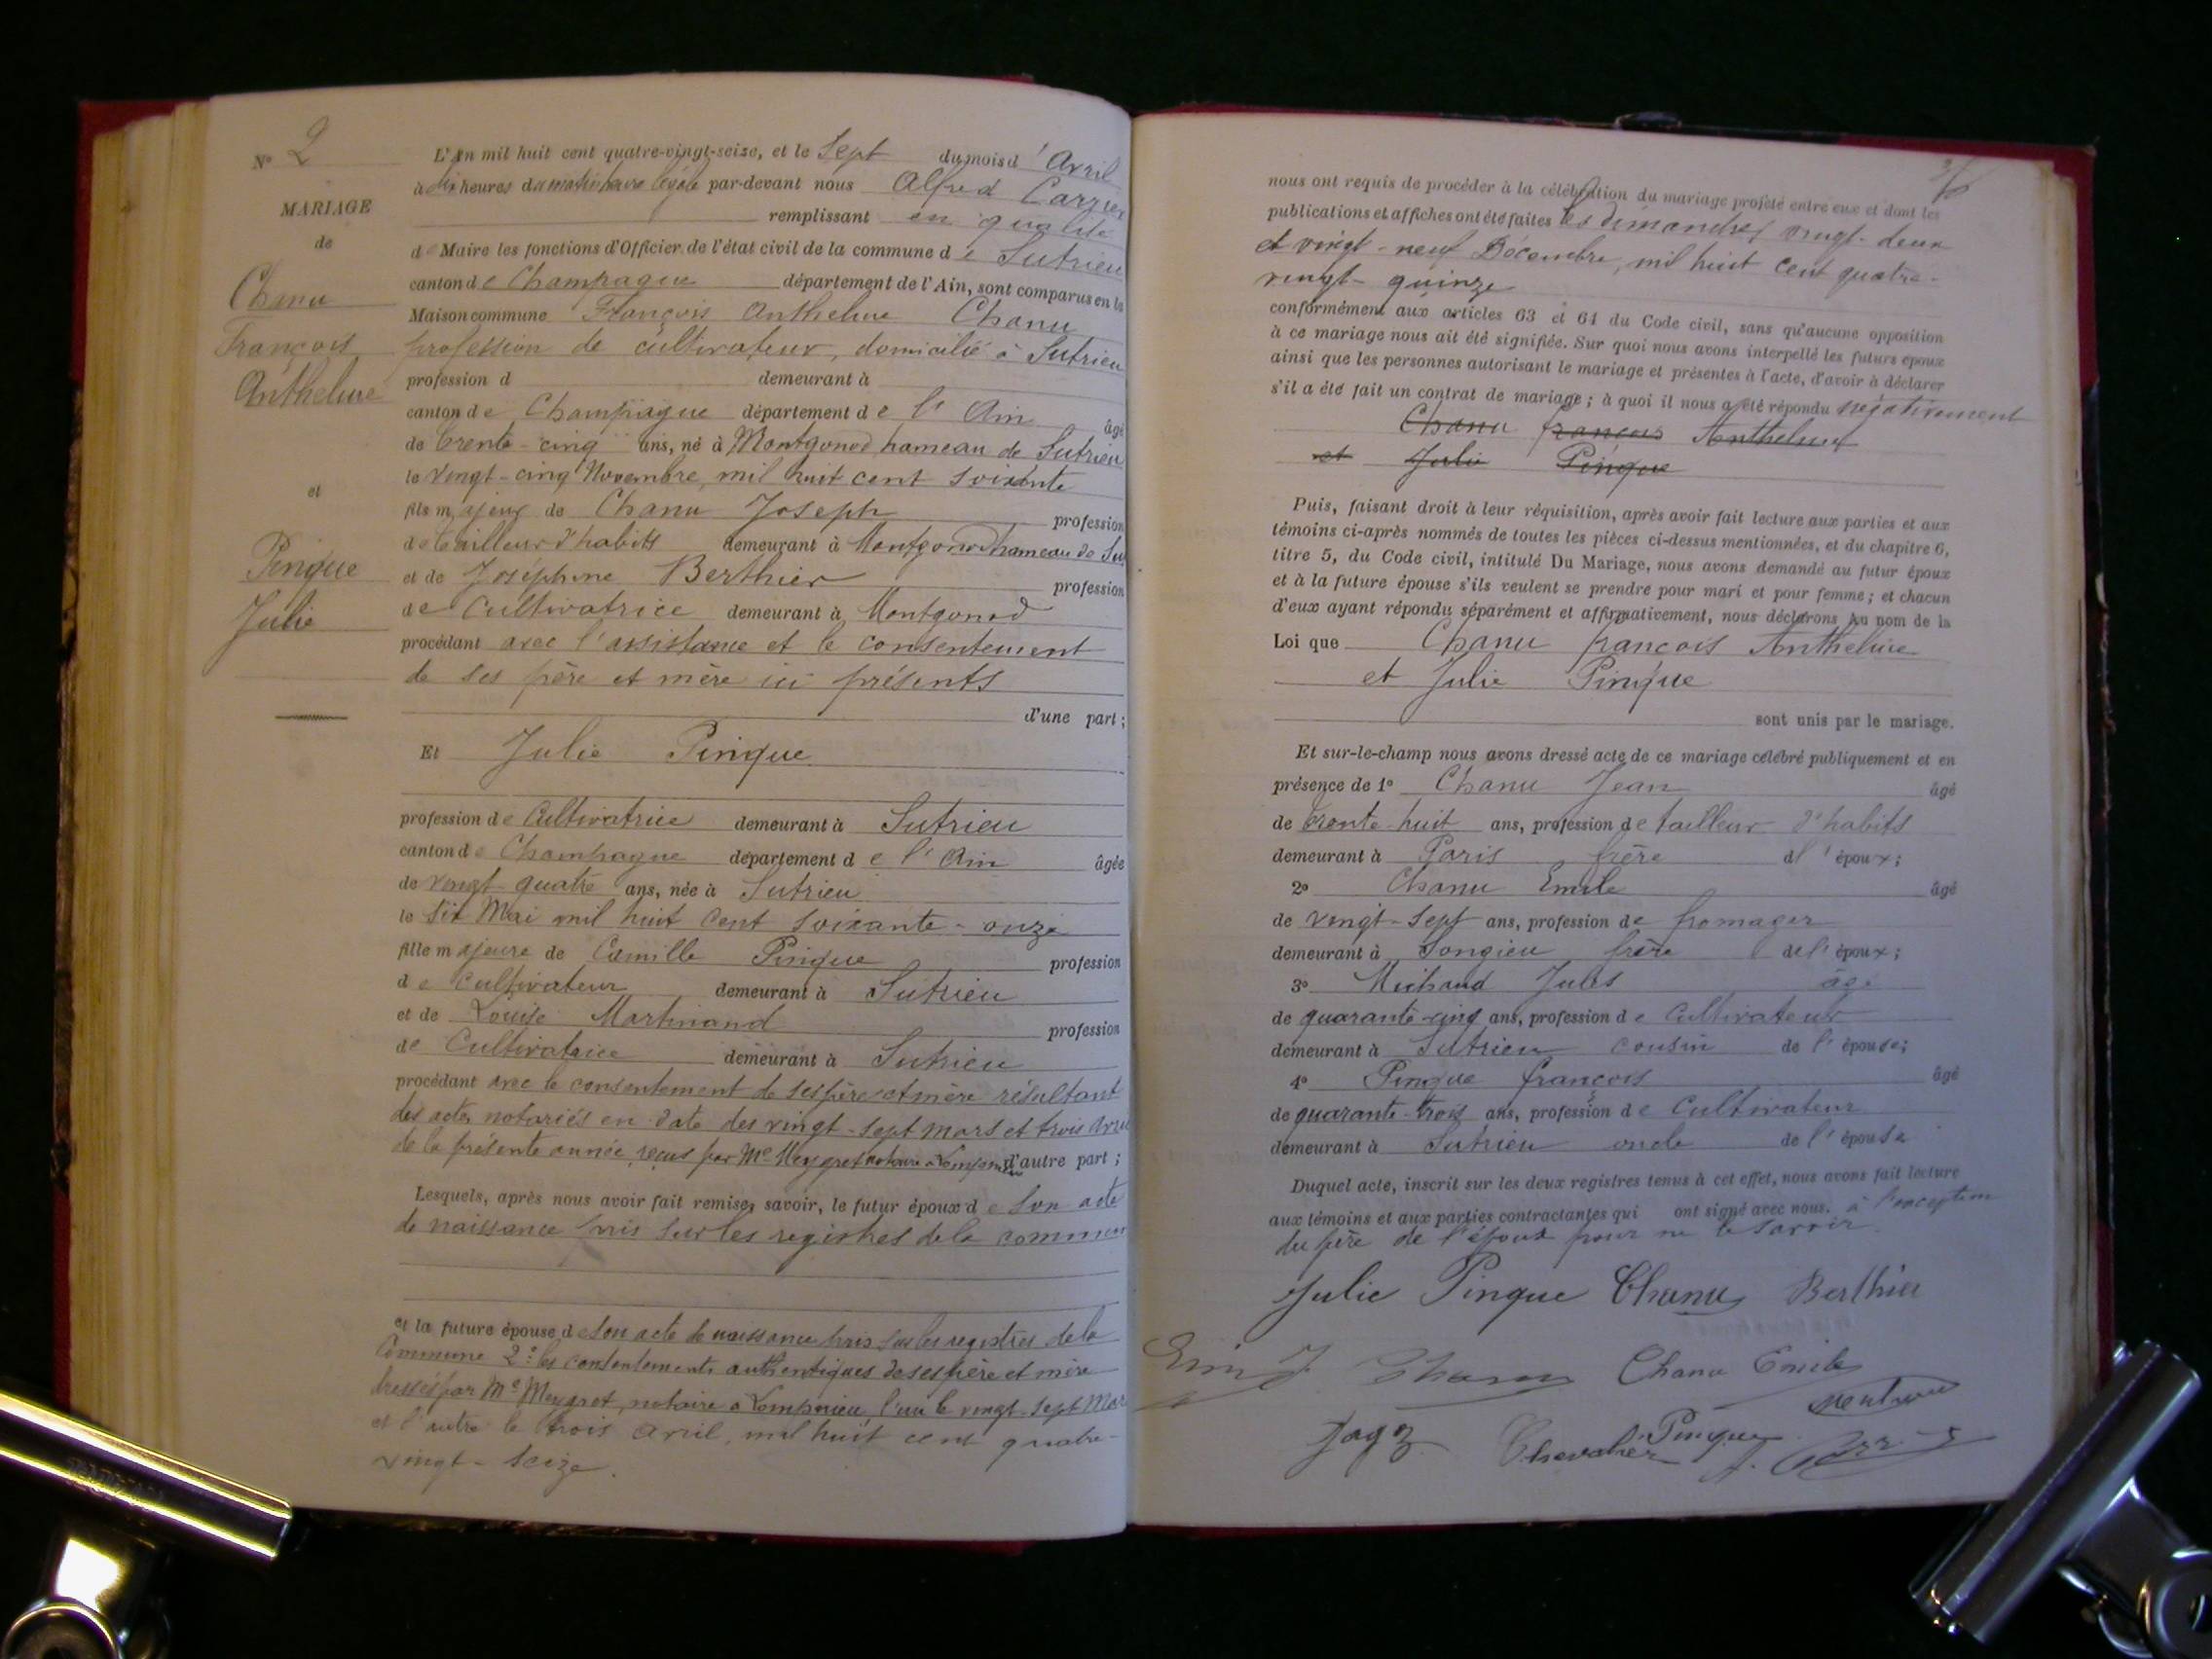 N° 2
MARIAGE
de
Chanu
François
Anthelme
et
Pingue
Julie
L'An mil huit cent quatre-vingt-seize, et le Sept du mois d'Avril
à dix heures du matin heure légale par-devant nous Alfred Carrier
remplissant en qualité
de Maire les fonctions d'Officier de l'état civil de la commune de Sutrieu
canton de Champagne département de l'Ain, sont comparus en la
Maison commune François Anthelme Chanu
profession de cultivateur, domicilié à Sutrieu
profession d demeurant à
canton de Champagne département de l'Ain âgé
de trente-cinq ans, né à Montgonod hameau de Sutrieu
le vingt-cinq Novembre, mil huit cent soixante
fils majeur de Chanu Joseph profession
de tailleur d'habits demeurant à Montgonod hameau de Su
et de Joséphine Berthier profession
de Cultivatrice demeurant à Montgonod
procédant avec l'assistance et le consentement
de ses père et mère ici présents
d'une part;
Et Julie Pingue
profession de Cultivatrice demeurant à Sutrieu
canton de Champagne département de l'Ain âgée
de vingt-quatre ans, née à Sutrieu
le six Mai mil huit cent soixante-onze
fille majeure de Camille Pingue profession
de cultivateur demeurant à Sutrieu
et de Louise Martinand profession
de Cultivatrice demeurant à Sutrieu
procédant avec le consentement de ses père et mère résultant
des actes notariés en date des vingt-sept mars et trois Avril
de la présente année reçus par Me Meygret notaire à d'autre part;
Lesquels, après nous avoir fait remise, savoir, le futur époux de son acte
de naissance pris sur les registres de la commune
et la future épouse de son acte de naissance pris sur les registres de la
Commune 2° les consentements authentiques de ses père et mère
dressés par Me Meygret, notaire à l'un le vingt-sept Mars
et l'autre le trois avril, mil huit cent quatre-
vingt-seize.
nous ont requis de procéder à la célébration du mariage projeté entre eux et dont les
publications et affiches ont été faites les dimanches vingt-deux
et vingt-neuf Décembre, mil huit cent quatre-
vingt-quinze
conformément aux articles 63 et 64 du Code civil, sans qu'aucune opposition
à ce mariage nous ait été signifiée. Sur quoi nous avons interpellé les futurs époux
ainsi que les personnes autorisant le mariage et présentes à l'acte, d'avoir à déclarer
s'il a été fait un contrat de mariage; à quoi il nous a été répondu négativement
Chanu françois Anthelme
et Julie Pingue
Puis, faisant droit à leur réquisition, après avoir fait lecture aux parties et aux
témoins ci-après nommés de toutes les pièces ci-dessus mentionnées, et du chapitre 6,
titre 5, du Code civil, intitulé Du Mariage, nous avons demandé au futur époux
et à la future épouse s'ils veulent se prendre pour mari et pour femme; et chacun
d'eux ayant répondu séparément et affirmativement, nous déclarons Au nom de la
Loi que Chanu françois Anthelme
et Julie Pingue
sont unis par le mariage.
Et sur-le-champ nous avons dressé acte de ce mariage célébré publiquement et en
présence de 1° Chanu Jean âgé
de trente-huit ans, profession de tailleur d'habits
demeurant à Paris frère de l'époux;
2° Chanu Emile âgé
de vingt-sept ans, profession de fromager
demeurant à Songieu frère de l'époux;
3° Michaud Jules âgé
de quarante-cinq ans, profession de Cultivateur
demeurant à Sutrieu cousin de l'épouse;
4° Pingue françois âgé
de quarante-trois ans, profession de Cultivateur
demeurant à Sutrieu oncle de l'épouse
Duquel acte, inscrit sur les deux registres tenus à cet effet, nous avons fait lecture
aux témoins et aux parties contractantes qui ont signé avec nous. à l'exception
du père de l'époux pour ne le savoir
Julie Pingue Chanu Berthier
Chanu Chanu Emile
Chevalier Pingue